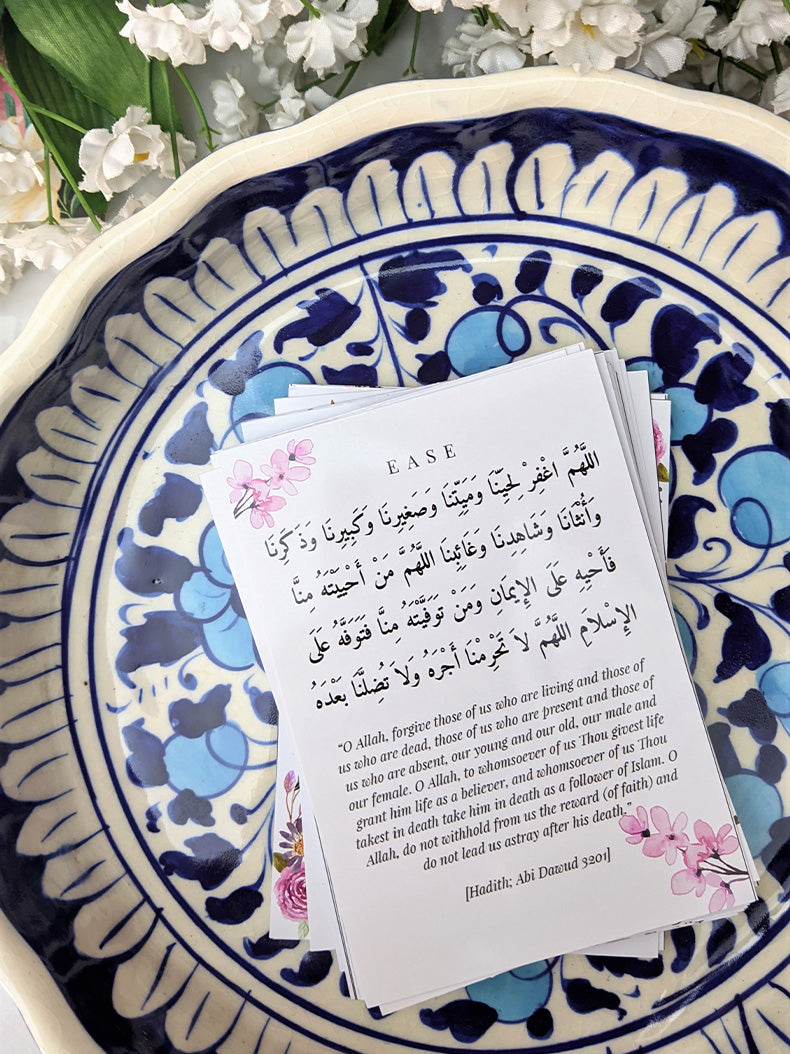 EASE
اللَّهُمَّ اغْفِرْ لِحَيِّنَا وَمَيِّتِنَا وَصَغِيرِنَا وَكَبِيرِنَا وَذَكَرِنَا
وَأُنْثَانَا وَشَاهِدِنَا وَغَائِبِنَا اللَّهُمَّ مَنْ أَحْيَيْتَهُ مِنَّا
فَأَحْيِهِ عَلَى الإِيمَانِ وَمَنْ تَوَفَّيْتَهُ مِنَّا فَتَوَفَّهُ عَلَى
الإِسْلَامِ اللَّهُمَّ لاَ تَحْرِمْنَا أَجْرَهُ وَلاَ تُضِلَّنَا بَعْدَهُ
“O Allah, forgive those of us who are living and those of
us who are dead, those of us who are present and those of
us who are absent, our young and our old, our male and
our female. O Allah, to whomsoever of us Thou givest life
grant him life as a believer, and whomsoever of us Thou
takest in death take him in death as a follower of Islam. O
Allah, do not withhold from us the reward (of faith) and
do not lead us astray after his death.”
[Hadith; Abi Dawud 3201]